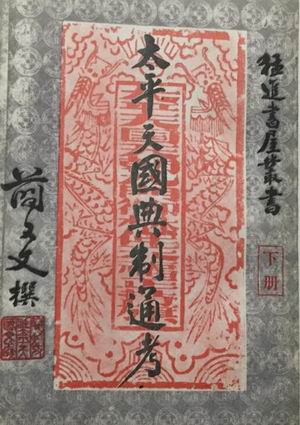 猛進書屋叢書
太平天國典制通考
下册
簡又文撰